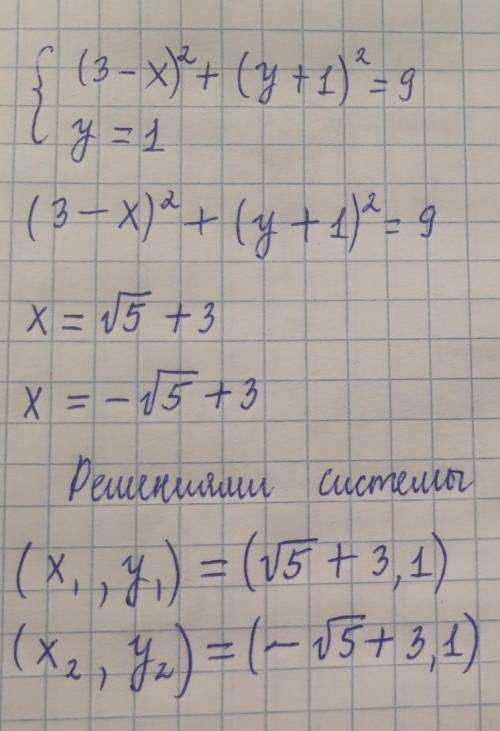 { (3 - x)² + (y + 1)² = 9
y = 1
(3 - x)² + (y + 1)² = 9
x = √5 + 3
x = -√5 + 3
Решениями системы
(x₁, y₁) = (√5 + 3, 1)
(x₂, y₂) = (-√5 + 3, 1)